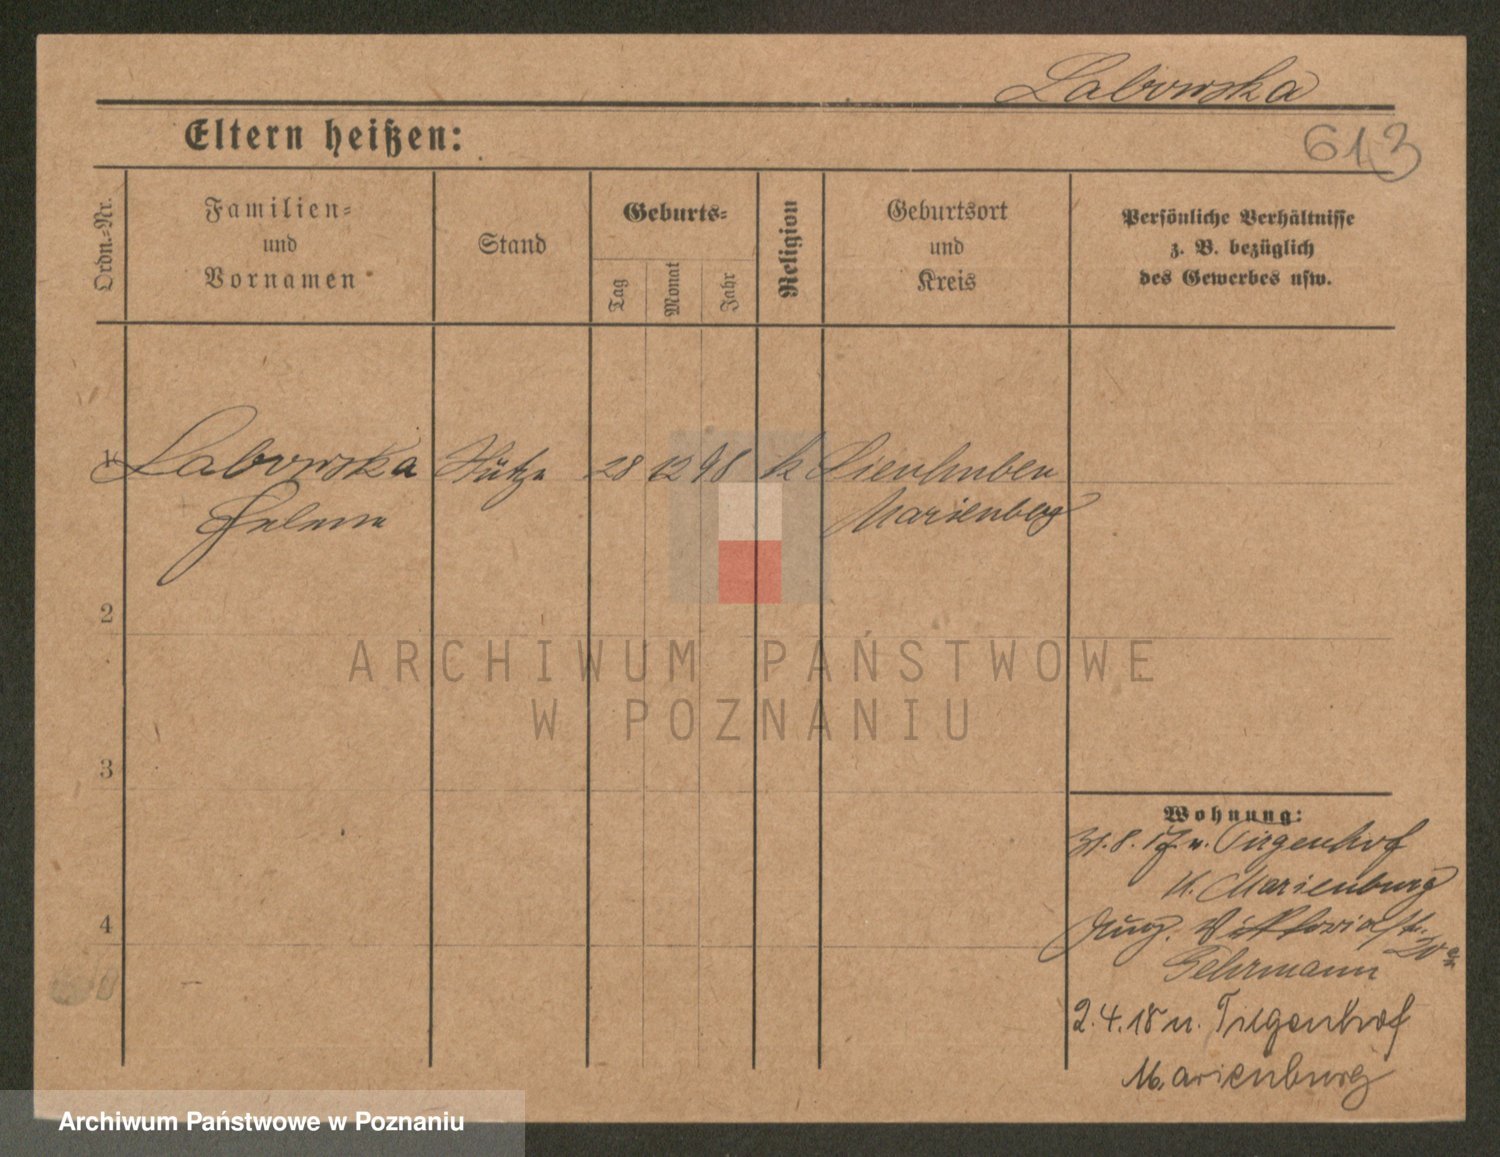 Labowska
613
Eltern heißen:
Ordn.-Nr.
Familien-
und
Vornamen
Stand
Geburts-
Tag
Monat
Jahr
Religion
Geburtsort
und
Kreis
Persönliche Verhältnisse
z. B. bezüglich
des Gewerbes usw.
1 Labowska Stütze 28 12 98 k Lienhuben
Helene Marienberg
2
3
4
Wohnung:
31.8.17. n. Tiegenhof
K. Marienburg
Viktoriastr. 20
Fehrmann
2.4.18 n. Tiegenhof
Marienburg
ARCHIWUM PAŃSTWOWE
W POZNANIU
Archiwum Państwowe w Poznaniu